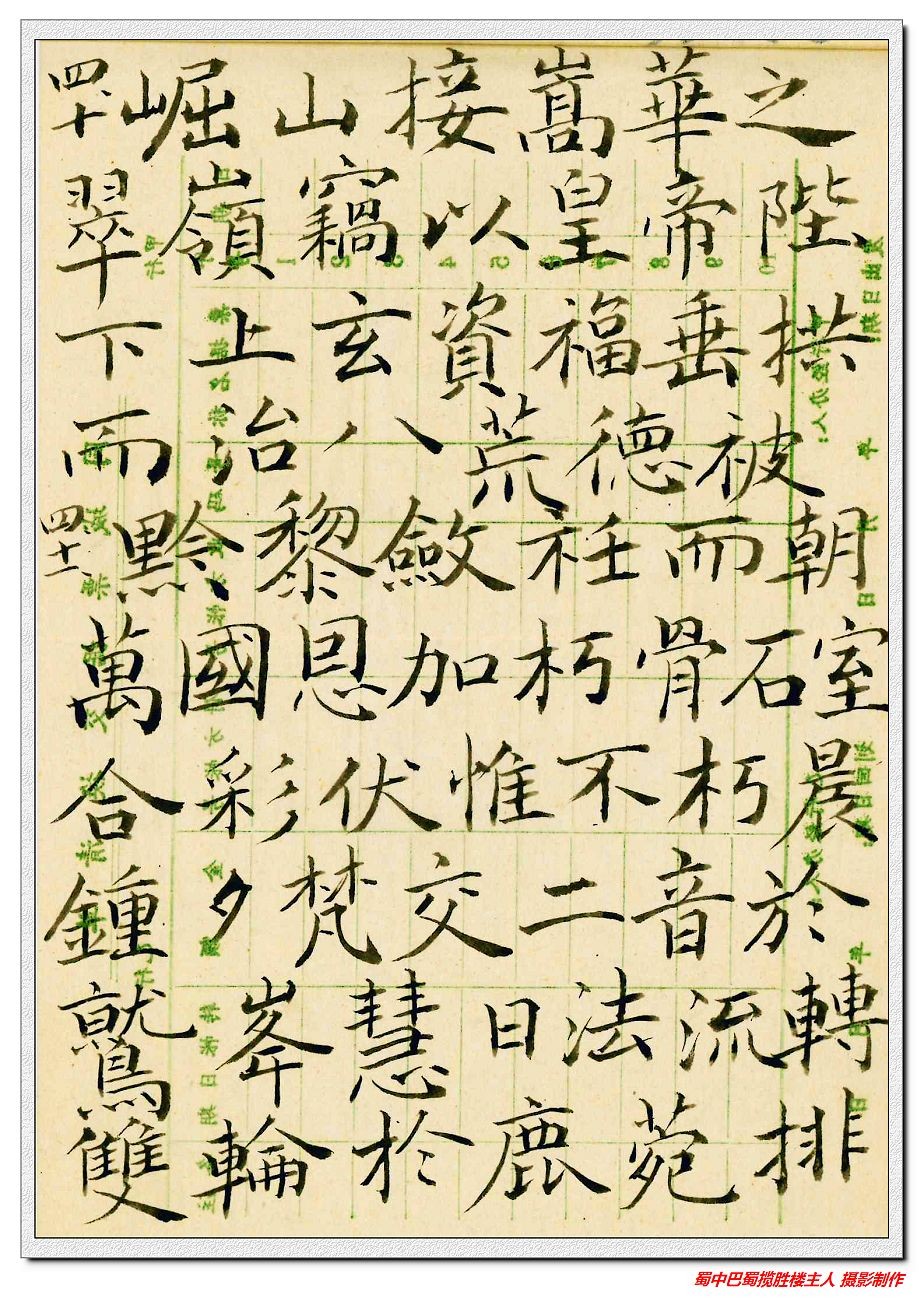 四十 崛山接嵩華之
翠嶺竊以皇帝陛
下上玄資福垂拱
而治八荒德被
四十一 黔黎斂衽而朝
萬國恩加朽骨石室
合彩伏惟不朽晨
鍾夕梵交二音於
鷲峯慧日法流轉
雙輪於鹿菀排
蜀中巴蜀揽胜楼主人 摄影制作